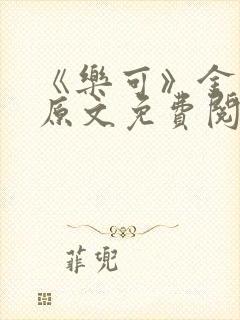 《樂可》全
原文免費閱
菲兜